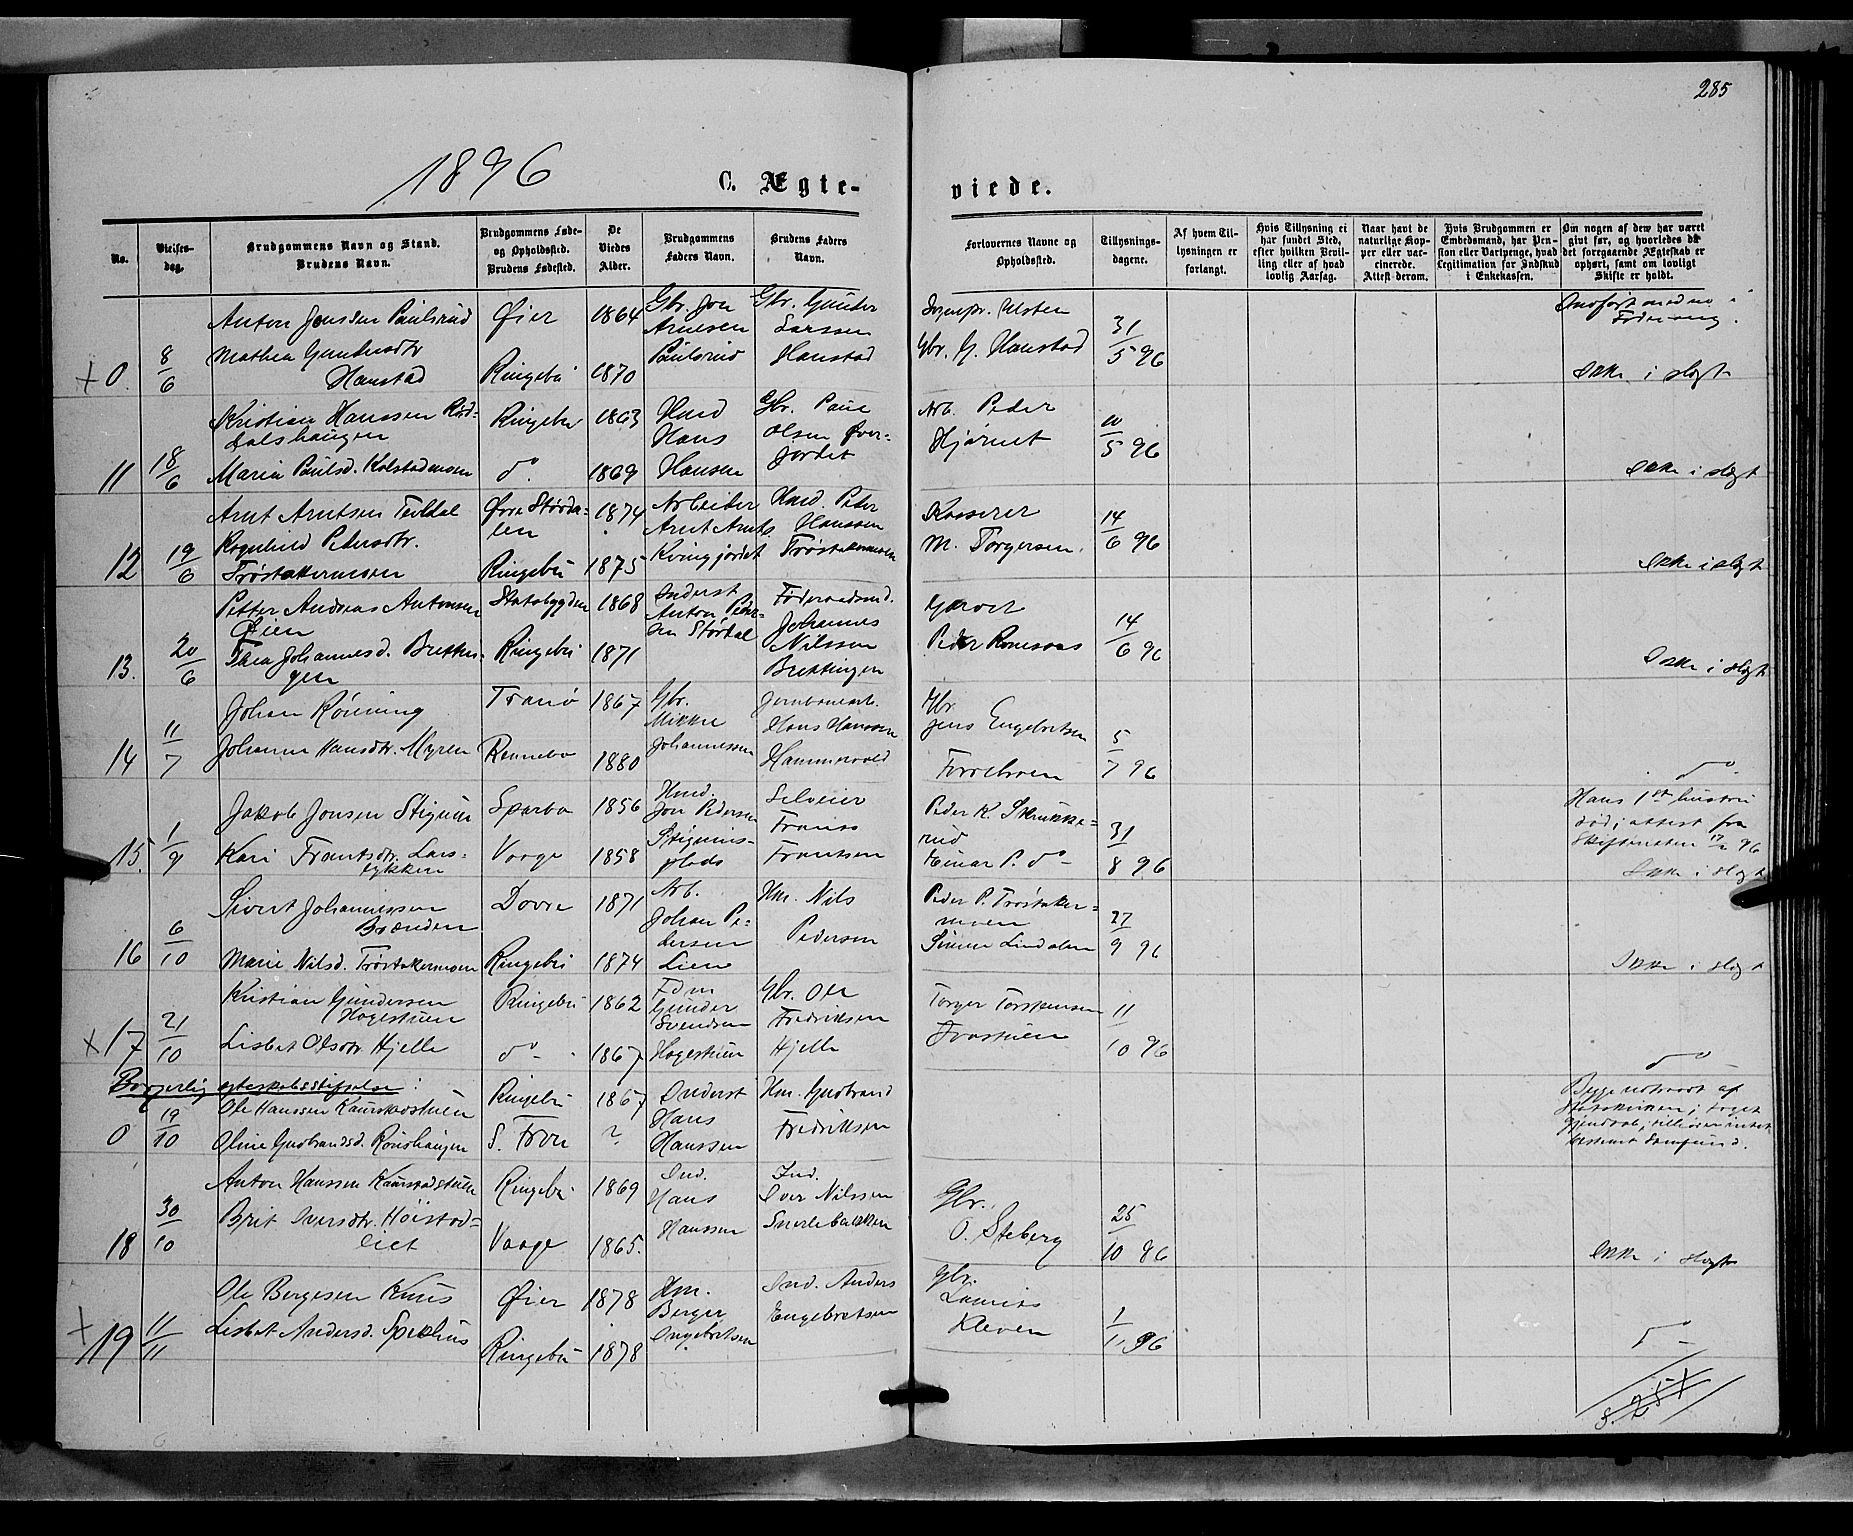 285
1896
C. Ægteviede.
No.
Vielses-
dag.
Brudgommens Navn og Stand.
Brudens Navn.
Brudgommens Føde-
og Opholdssted.
Brudens Fødested.
De
Viedes
Alder.
Brudgommens
Faders Navn.
Brudens Faders
Navn.
Forlovernes Navne og
Opholdssted.
Tillysnings-
dagene.
Af hvem Til-
lysningen er
forlangt.
Hvis Tillysning ei
har fundet Sted,
efter hvilken Bevil-
ling eller af hvad
lovlig Aarsag.
Naar havt de
naturlige Kop-
per eller vac-
cinerede.
Attest derom.
Hvis Brudgommen er
Embedsmand, har Pen-
sion eller Vartpenge, hvad
Legitimation for Indskud
i Enkekassen.
Om nogen af dem har været
givt før, og hvorledes da
det foregaaende Ægteskab er
ophørt, samt om lovligt
Skifte er holdt.
+ 0. 8/6
Anton Jonssen Paulsrud
Mathea Gundersdtr
Hanstad
Øier 1864
Ringebu 1870
Gbr. Jon
Arnesen
Paulsrud
Gbr. Gunder
Larssen
Hanstad
Gbr. G. Hanstad
31/5 96
Ikke i slegt
11 18/6
Kristian Hanssen
Maria Paulsd. Kolstadmoen
Ringebu 1863
do. 1869
Hmd
Hans
Hansen
Gbr. Paul
Olsen Øver-
jordet
Arb. Peder
Hjørnet
10/5 96
Ikke i slegt
12 19/6
Arnt Arntsen
Ragnhild Pedersdtr.
Trøstakermoen
Øvre Størda-
len 1874
Ringebu 1875
Arbeider
Arnt Arnts.
Kringjordet
Hmd. Peder
Hanssen
Trøstakermoen
Kasserer
M. Torgersen.
14/6 96
Ikke i slegt
13. 20/6
Petter Andreas Antonsen
Øien
Thea Johannesd. Brettin-
gen
Statsbygden 1868
Ringebu 1871
Inderst
Anton Peder-
sen Størdal
Føderaadsmd.
Johannes
Nilssen
Brettingen
Peder
14/6 96
Ikke i slegt
14 11/7
Johan Rønning
Johanne Hansdtr. Myren
Tranø 1867
Rennebo 1880
Gbr.
Mikkel
Johannessen
Jernbanearb.
Hans Hanssen
Hammervold
Gbr
Jens Engebretsen
5/7 96
do.
15. 1/9
Jakob Jonsen Stignin
Kari Frantsdtr. Lars-
lykken
Sparbo 1856
Vaage 1858
Hmd.
Jon Pedersen
Stignins-
plads
Selveier
Frants
Frantsen
Peder K. Skrukke-
rud
Einar P. do -
31/8 96
Hans 1ste hustru
død; attest fra
Skifteretten 17/2 96
Ikke i slegt
16 6/10
Sivert Johannessen
Brænden
Marie Nilsd. Trøstakermoen
Dovre 1871
Ringebu 1874
Arb.
Johan Pe-
dersen
Lien
Hm. Nils
Pedersen
Peder P. Trøstaker-
moen
Simen Lindalen
27/9 96
Ikke i slegt
+ 17. 21/10
Kristian Gundersen
Hagestuen
Lisbet Olsdtr. Hjelle
Ringebu 1862
do - 1867
Fdm
Gunder
Svendsen
Hagestuen
Gbr. Ole
Fredriksen
Hjelle
Torger Torstensen
11/10 96
do
Borgerlig egteskabsstiftelse:
0 19/10
Ole Hanssen Kaurstadstuen
Oline Gudbrandsd. Rønshaugen
Ringebu 1867
S. Fron ?
Inderst
Hans
Hanssen
Hm. Gudbrand
Fredriksen
Begge udtraadt af
Statskirken;
18 30/10
Anton Hanssen Kaurstadstuen
Brit Iversdtr. Høistad-
liet
Ringebu 1869
Vaage 1865.
Ind.
Hans
Hanssen
Ind.
Iver Nilssen
Snerlebakken
Gbr.
O. Steberg
25/10 96
Ikke i slegt
+ 19 11/11
Ole Bergesen Kruis
Lisbet Andersd. Spekhus
Øier 1878
Ringebu 1878
Hm.
Berger
Ingebretsen
Ind. Anders
Engebretsen
Gbr.
Laurits
Kleven
1/11 96
do -